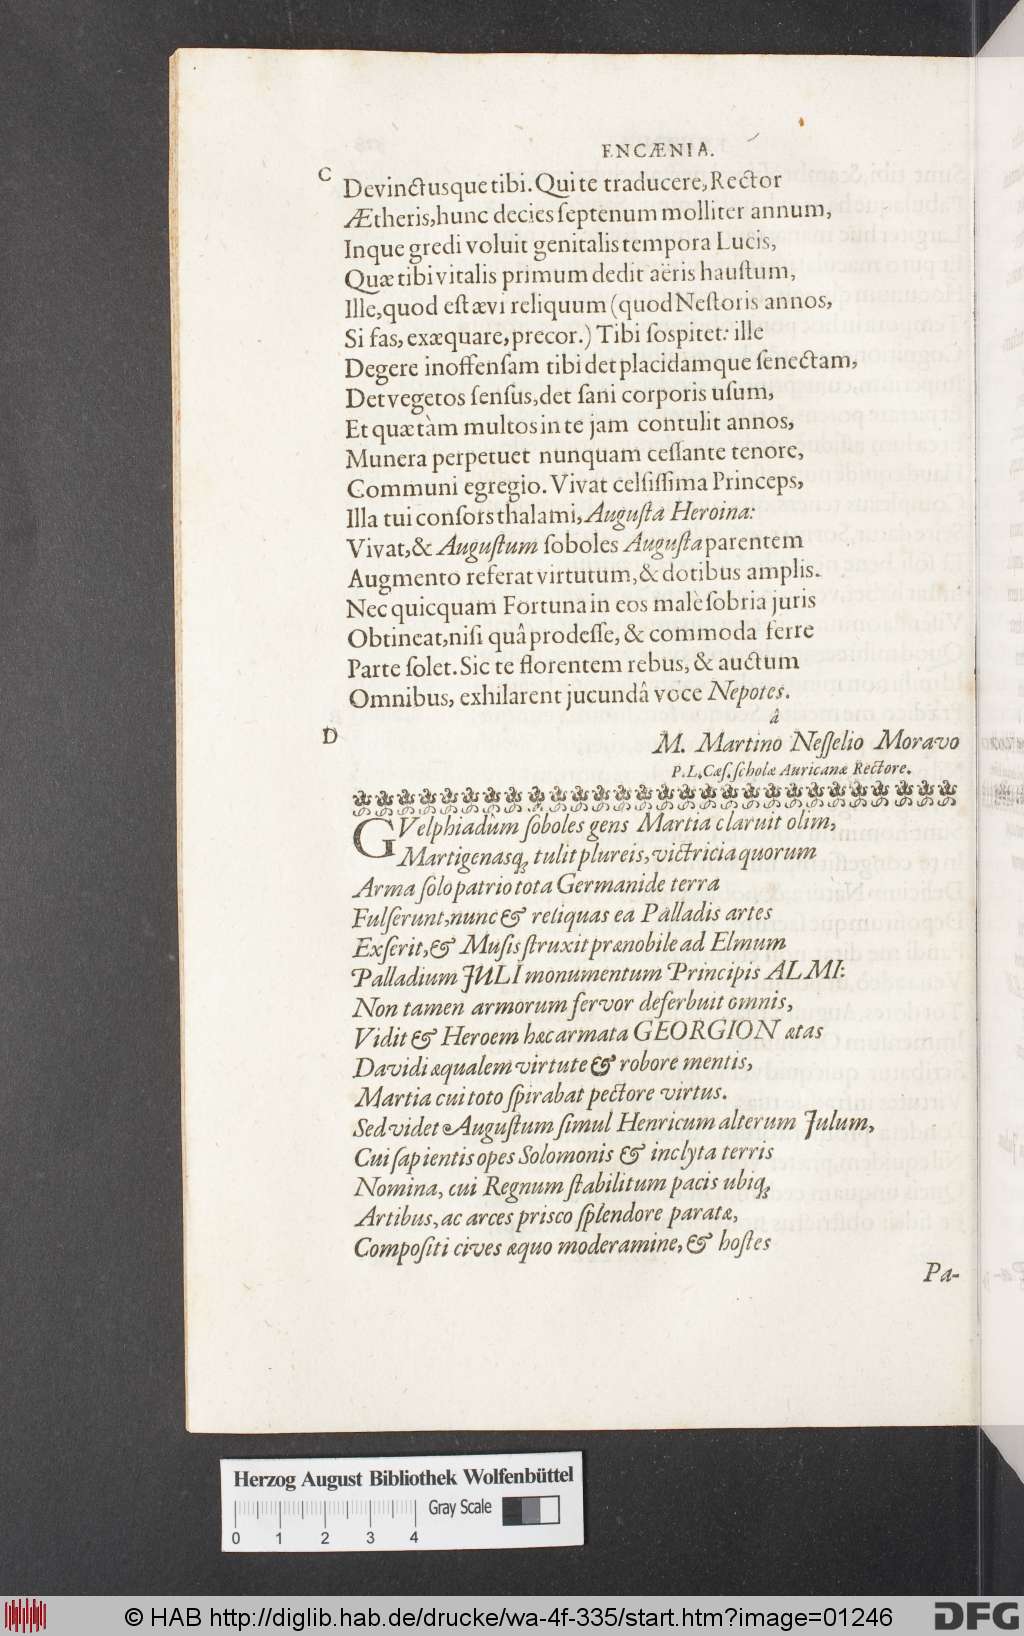 ENCÆNIA.
C
Devinctusque tibi. Qui te traducere, Rector
Ætheris, hunc decies septenum molliter annum,
Inque gredi voluit genitalis tempora Lucis,
Quæ tibi vitalis primum dedit aëris haustum,
Ille, quod est ævi reliquum (quod Nestoris annos,
Si fas, exæquare, precor.) Tibi sospitet: ille
Degere inoffensam tibi det placidamque senectam,
Det vegetos sensus, det sani corporis usum,
Et quæ tàm multos in te jam contulit annos,
Munera perpetuet nunquam cessante tenore,
Communi egregio. Vivat celsissima Princeps,
Illa tui consors thalami, Augusta Heroina:
Vivat, & Augustum soboles Augusta parentem
Augmento referat virtutum, & dotibus amplis.
Nec quicquam Fortuna in eos malè sobria juris
Obtineat, nisi quâ prodesse, & commoda ferre
Parte solet. Sic te florentem rebus, & auctum
Omnibus, exhilarent jucundâ voce Nepotes.
â
D
M. Martino Nesselio Moravo
P. L. Cæs. scholæ Auricanæ Rectore.
GVelphiadûm soboles gens Martia claruit olim,
Martigenasq; tulit plureis, victricia quorum
Arma solo patrio tota Germanide terra
Fulserunt, nunc & reliquas ea Palladis artes
Exserit, & Musis struxit prænobile ad Elmum
Palladium JULI monumentum Principis ALMI:
Non tamen armorum fervor deferbuit omnis,
Vidit & Heroem hæc armata GEORGION ætas
Davidi æqualem virtute & robore mentis,
Martia cui toto spirabat pectore virtus.
Sed videt Augustum simul Henricum alterum Julum,
Cui sapientis opes Solomonis & inclyta terris
Nomina, cui Regnum stabilitum pacis ubiq;
Artibus, ac arces prisco splendore paratæ,
Compositi cives æquo moderamine, & hostes
Pa-
Herzog August Bibliothek Wolfenbüttel
Gray Scale
0 1 2 3 4
© HAB http://diglib.hab.de/drucke/wa-4f-335/start.htm?image=01246
DFG